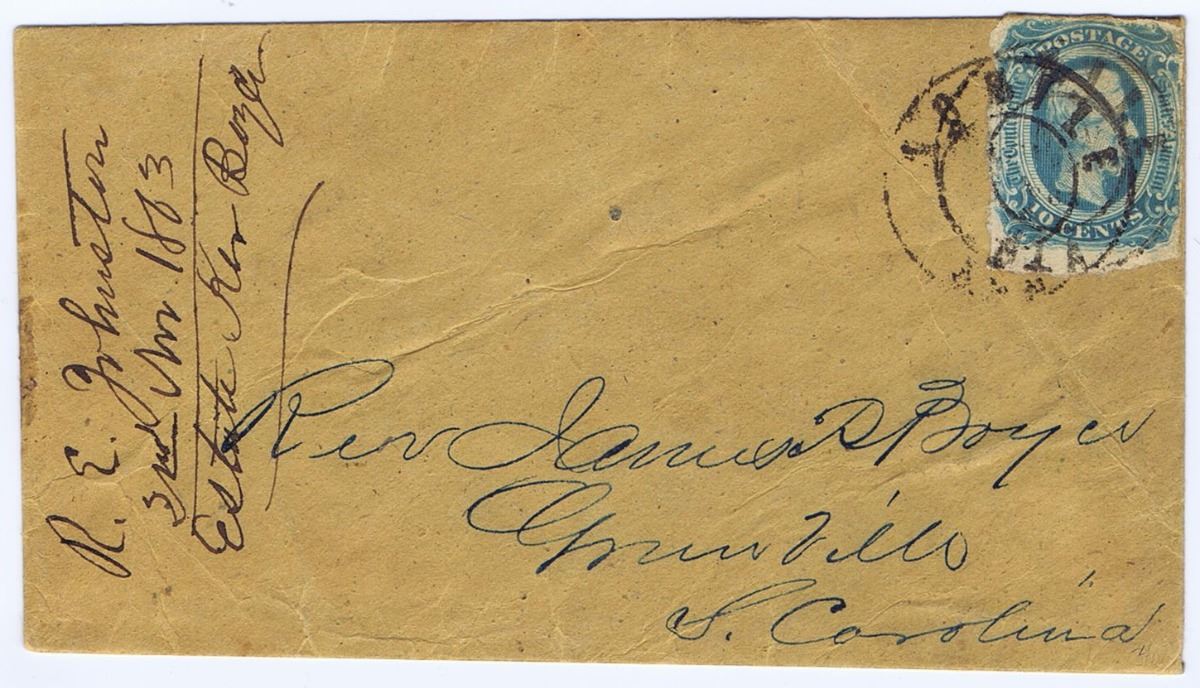 R. E. Johnston
3rd Nov 1863
Estate Ker Boyce
POSTAGE
The Confederate States America
10 CENTS
Rev James P Boyce
Greenville
S. Carolina